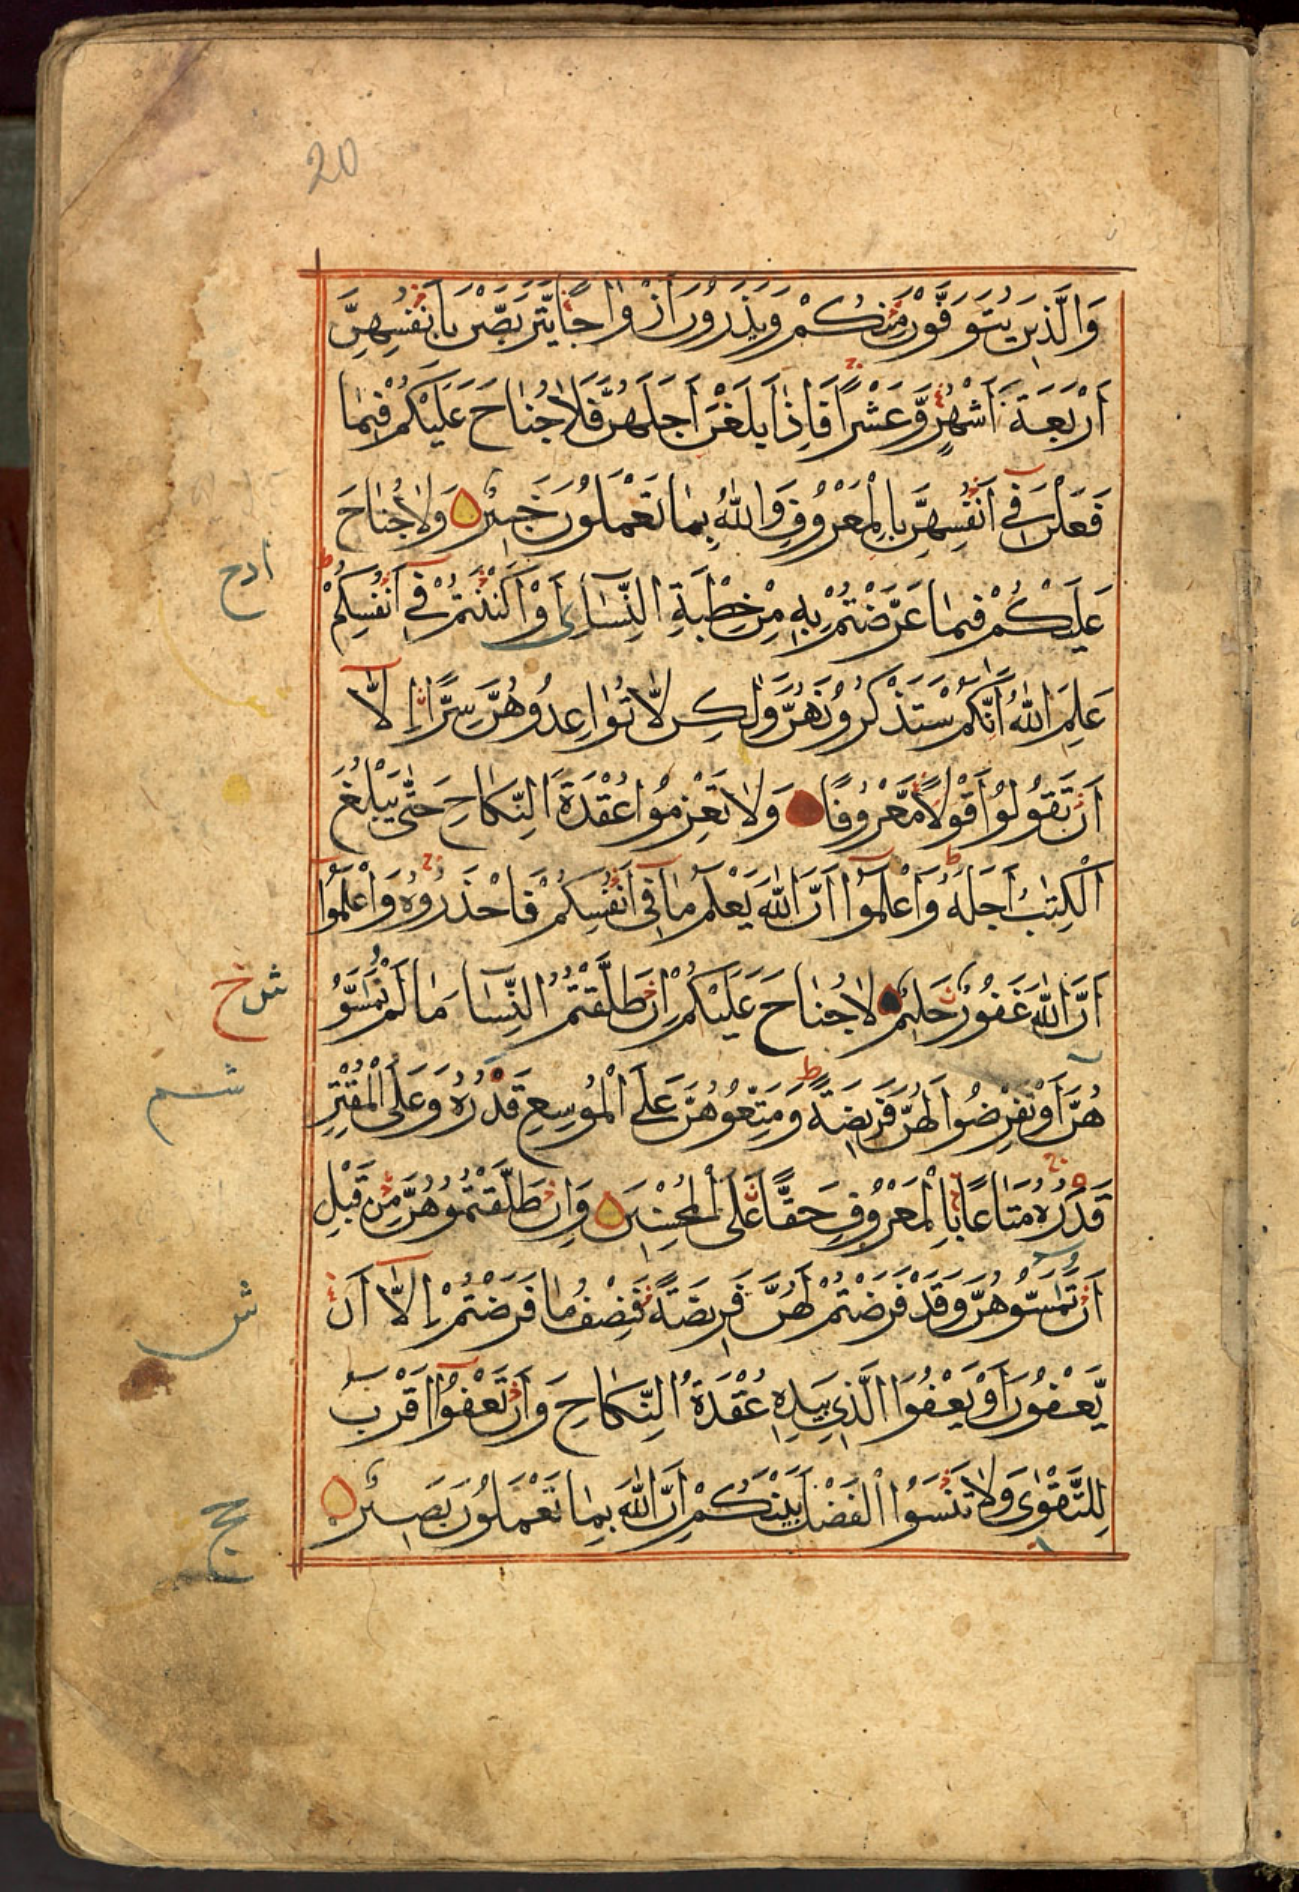 20
وَالَّذِينَ يُتَوَفَّوْنَ مِنْكُمْ وَيَذَرُونَ اَزْوَاجًا يَتَرَبَّصْنَ بِاَنْفُسِهِنَّ
اَرْبَعَةَ اَشْهُرٍ وَّعَشْرًا فَاِذَا بَلَغْنَ اَجَلَهُنَّ فَلَا جُنَاحَ عَلَيْكُمْ فِيمَا
فَعَلْنَ فِي اَنْفُسِهِنَّ بِالْمَعْرُوفِ وَاللّٰهُ بِمَا تَعْمَلُونَ خَبِيْرٌ وَلَا جُنَاحَ
عَلَيْكُمْ فِيمَا عَرَّضْتُمْ بِهِ مِنْ خِطْبَةِ النِّسَآءِ اَوْ اَكْنَنْتُمْ فِي اَنْفُسِكُمْ
عَلِمَ اللّٰهُ اَنَّكُمْ سَتَذْكُرُوْنَهُنَّ وَلٰكِن لَّا تُوَاعِدُوْهُنَّ سِرًّا اِلَّا
اَنْ تَقُولُوْا قَوْلًا مَّعْرُوفًا وَلَا تَعْزِمُوْا عُقْدَةَ النِّكَاحِ حَتّٰى يَبْلُغَ
الْكِتٰبُ اَجَلَهُ وَاعْلَمُوْا اَنَّ اللّٰهَ يَعْلَمُ مَا فِي اَنْفُسِكُمْ فَاحْذَرُوْهُ وَاعْلَمُوْا
اَنَّ اللّٰهَ غَفُوْرٌ حَلِيْمٌ لَا جُنَاحَ عَلَيْكُمْ اِنْ طَلَّقْتُمُ النِّسَآ مَا لَمْ تَمَسُّوْ
هُنَّ اَوْ تَفْرِضُوا لَهُنَّ فَرِيضَةً وَمَتِّعُوْهُنَّ عَلَى الْمُوسِعِ قَدْرُهُ وَعَلَى الْمُقْتِرِ
قَدْرُهُ مَتَاعًا بِالْمَعْرُوفِ حَقًّا عَلَى الْمُحْسِنِينَ وَاِنْ طَلَّقْتُمُوْهُنَّ مِنْ قَبْلِ
اَنْ تَمَسُّوْهُنَّ وَقَدْ فَرَضْتُمْ لَهُنَّ فَرِيضَةً فَنِصْفُ مَا فَرَضْتُمْ اِلَّا اَنْ
يَّعْفُوْنَ اَوْ يَعْفُوَا الَّذِي بِيَدِهِ عُقْدَةُ النِّكَاحِ وَاَنْ تَعْفُوْا اَقْرَبُ
لِلتَّقْوٰى وَلَا تَنْسَوُا الْفَضْلَ بَيْنَكُمْ اِنَّ اللّٰهَ بِمَا تَعْمَلُوْنَ بَصِيْرٌ